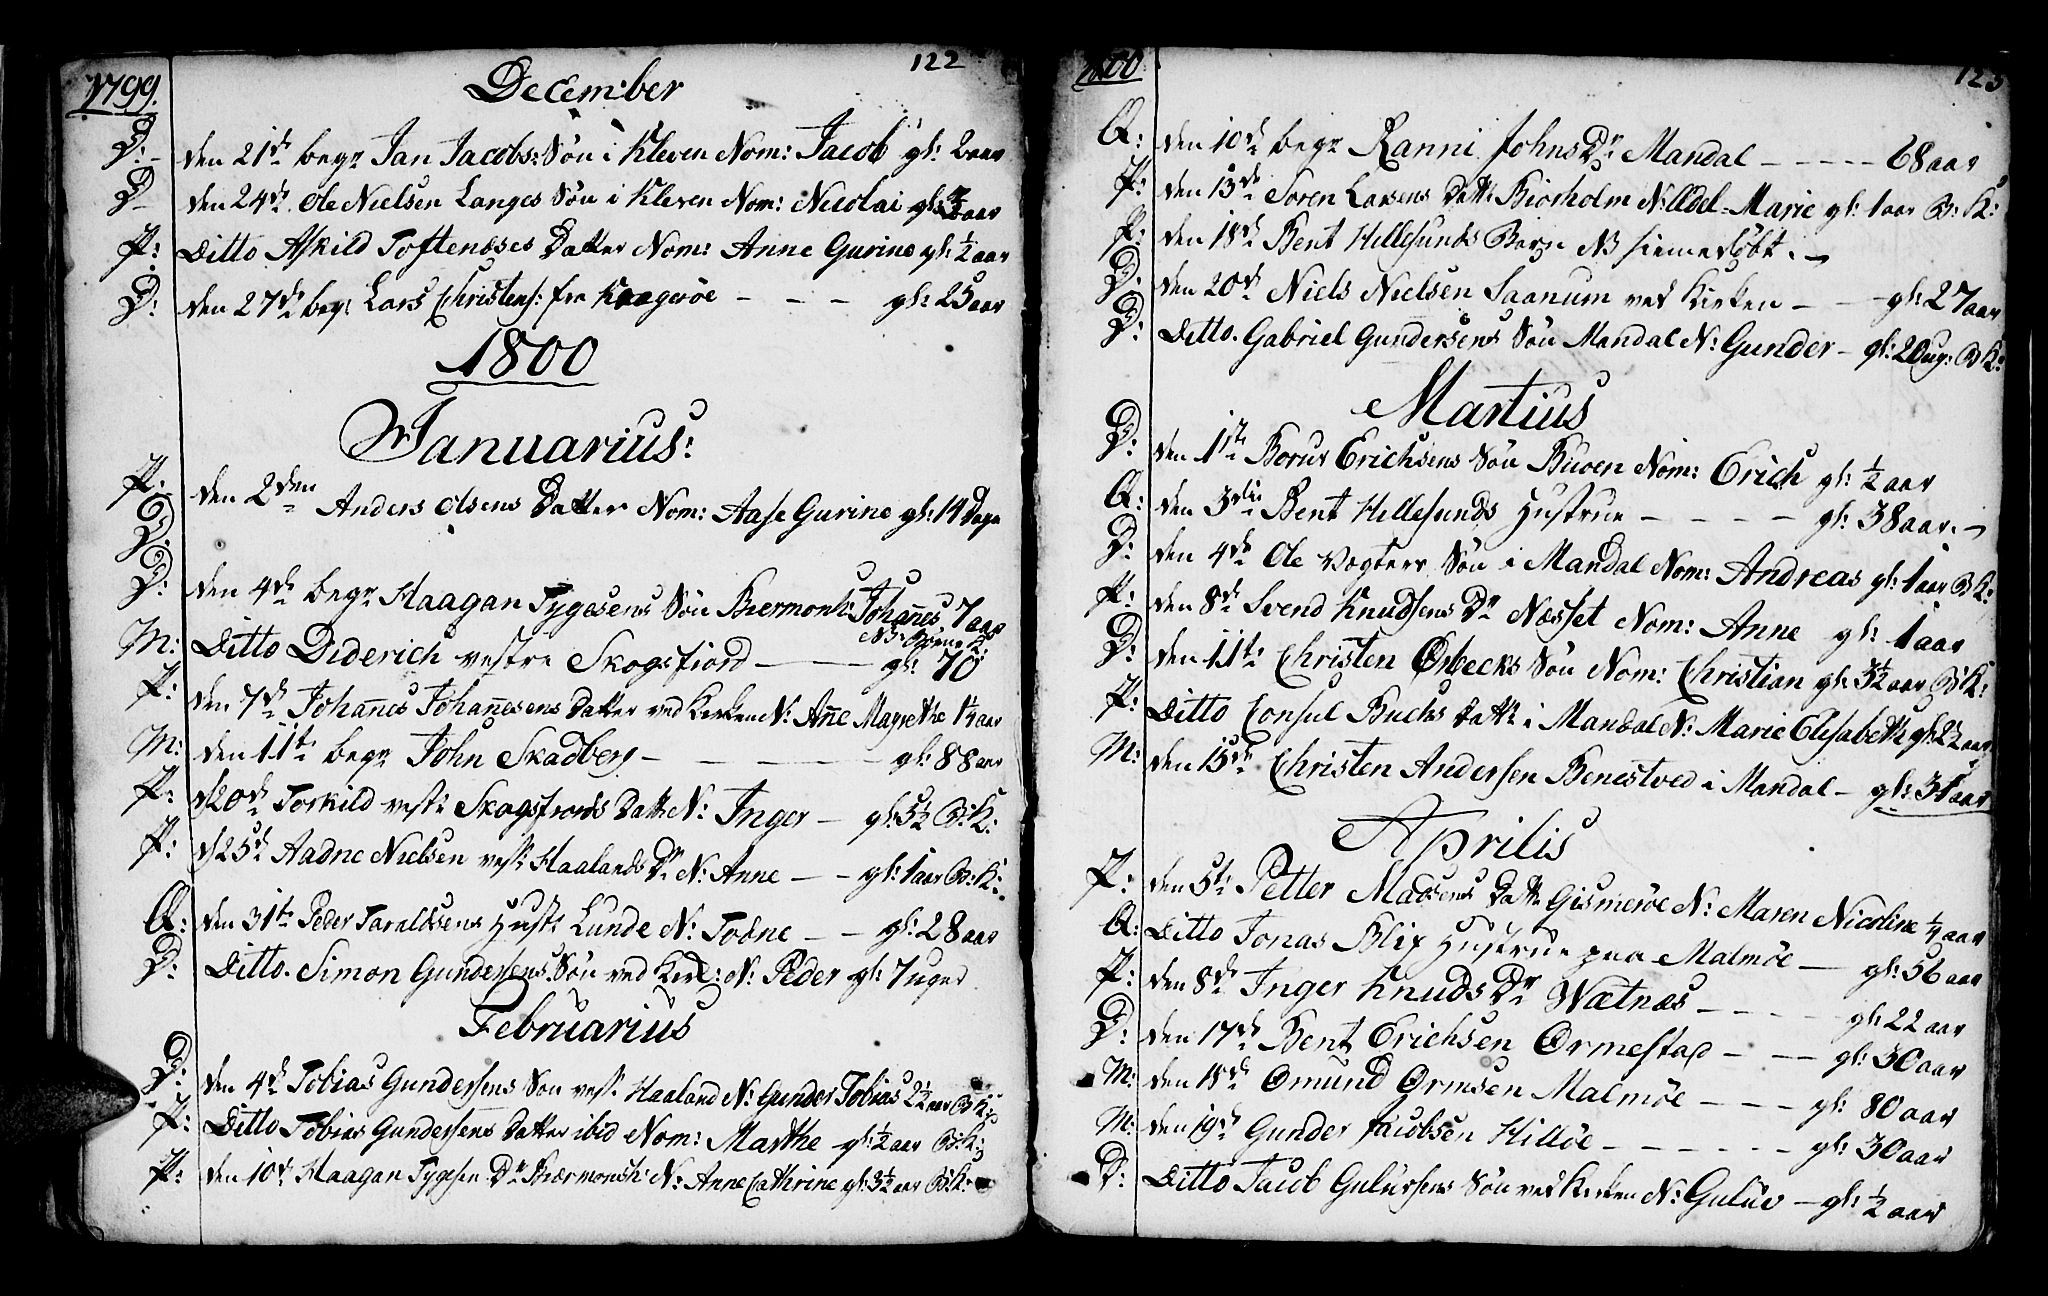 1799. December 122
D: den 21de begr Jan Jacobs: Søn i Kleven Nom: Jacob gl: 2 aar
D- den 24de Ole Nielsen Langes Søn i Kleven Nom: Nicolai gl: aar
P: Ditto Askild Toftenæses Datter Nom: Anne Gurine gl: ½ aar
D: den 27de begr Lars Christens: fra Kragerøe - - - gl: 25 aar
1800
Januarius:
P: den 2den Anders Olsens Datter Nom: Aase Gurine gl: 14 Dage
D:
D: den 4de begr Haagan Tygesens Søn Bærmonh: Johannes 7 aar
NB: Børne K:
M: Ditto Diderich vestre Skogsfiord - - gl: 70
P: den 7de Johanes Johanesens Datter ved Kirken N: Añe Magrethe ¼ aar
M: den 11te begr John Skadberg - - - - gl: 88 aar
P: d 20de Torkild vest: Skogsfiords Datt: N: Inger - gl: 5½ B: K:
P: d 25de Aadne Nielsen vest: Haalands Dr N: Anne - - gl: 1 aar B: K:
Q: den 31te Peder Taraldsens Hust: Lunde N: Tobne - - gl: 28 aar
D: Ditto. Simon Gundersens Søn ved Kirk: N: Peder gl: 7 uger
Februarius
D: den 4de Tobias Gundersens Søn vest: Haaland N: Gunder Tobias 2½ aar B K:
P: Ditto Tobias Gundersens Datter ibid Nom: Marthe gl: ½ aar B: K:
P: den 10de Haagan Tygesen Dr Skiærmonsh: N: Anne Cathrine gl: 3½ aar B: K:
1800 123
Q: den 10de begr Ranni Johns Dr Mandal - - - - 68 aar
P: den 13de Soren Larsens Datt: Biorholm N: Udel-Marie gl: 1 aar B: K:
P: den 18de Bent Hillesunds Barn NB hiemedøbt. -
D: den 20de Niels Nielsen Saanum ved Kirken - - gl: 27 aar
D: Ditto. Gabriel Gundersens Søn Mandal N: Gunder - gl: 20 ug: B K:
Martius
D: den 1ste Borur Erichsens Søn Buoen Nom: Erich gl: ½ aar
Q: den 3die Bent Hillesunds Hustrue - - - - gl: 38 aar. -
D: den 4de Ole Vogters Søn i Mandal Nom: Andreas gl: 1 aar B K:
P: den 8de Svend Knudsens Dr Næsset Nom: Anne gl: 1 aar
D: den 11te Christen Orbecks Søn Nom: Christian gl: 3½ aar B K:
P: Ditto Consul Buchs Datt: i Mandal N: Marie Elisabeth gl: 2½ aar
M: den 15de Christen Andersen Benestved i Mandal - gl: 31 aar
Aprilis
P: den 5te Petter Madsens Datt: Gismerøe N: Maren Nicoline ¼ aar
Q: Ditto Jonas Blix Hustrue paa Malmøe - gl: 56 aar
P: den 8de Inger Knuds Dr Wætnæs - - - - gl: 22 aar
D: den 17de Bent Erichsen Ormestad - - - gl: 30 aar
M: den 18de Omund Ormsen Malmøe - - - gl: 80 aar
M: den 19de Gunder Jacobsen Hilløe - - - - - gl: 30 aar
D: Ditto Jacob Gulursens Søn ved Kirken N: Guluv - gl: ½ aar